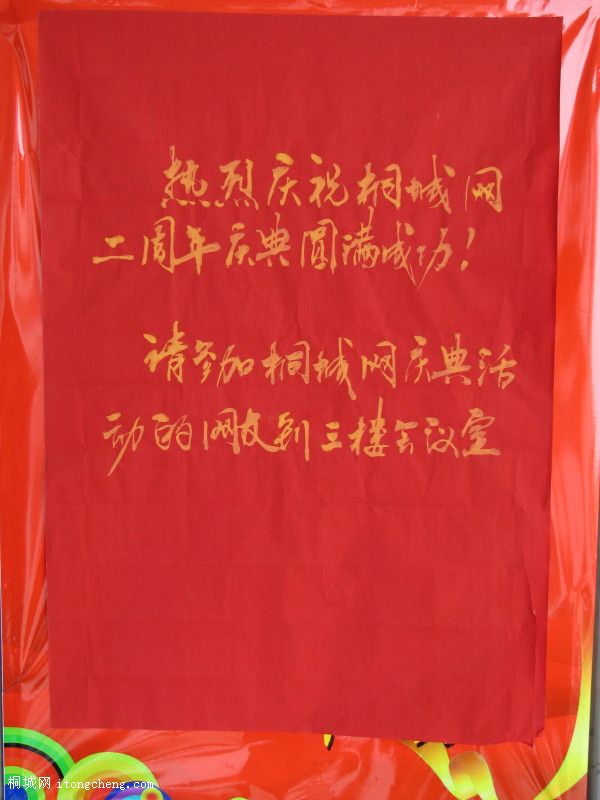 热烈庆祝桐城网
二周年庆典圆满成功！
请参加桐城网庆典活
动的网友到三楼会议室
桐城网 itongcheng.com